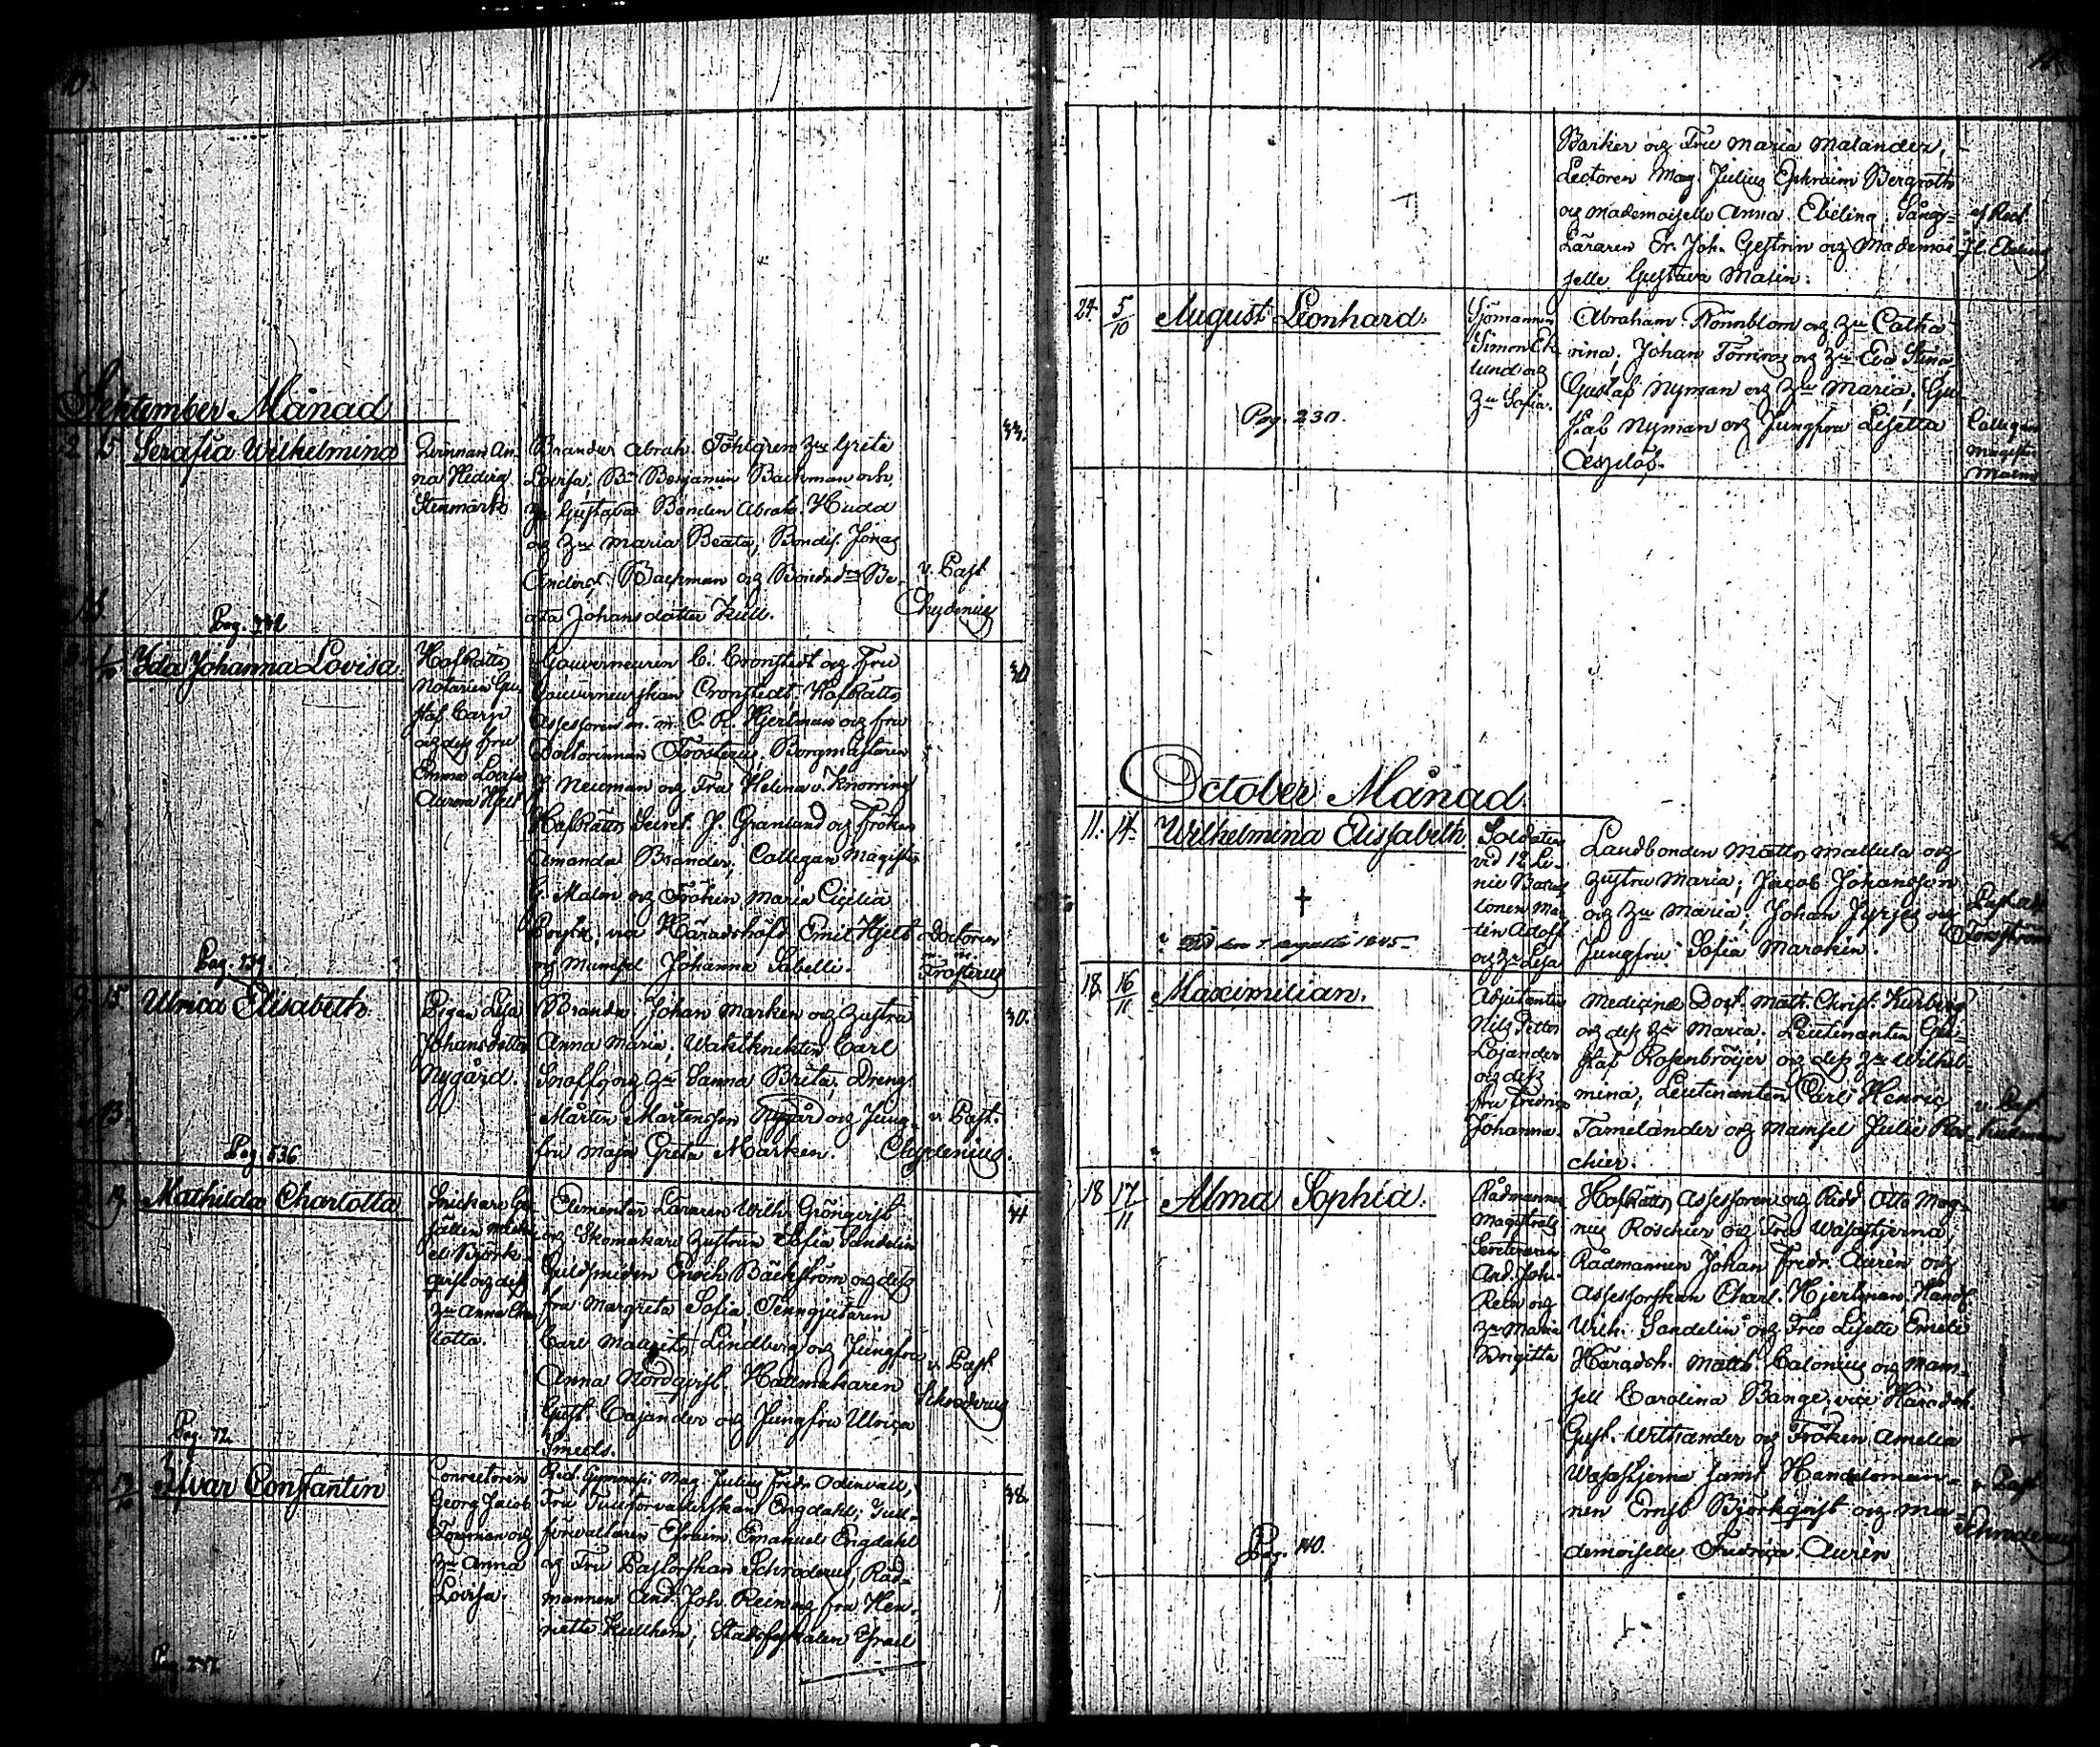 September Månad
2. 15 Serafia Wilhelmina
Qvinnan An-
na Hedvig
Stenmark
Brander Abrah. Töhlgren Zu Greta
Lovisa; Bn Benjamin Backman och
Zu Gustava Bonden Abrah. Hudd
og Zu Maria Beata; Bondes. Jonas
Anders. Backman og Be-
ata Johansdotter Kull.
v. Past
Chydenius
33.
Pag.
Ida Johanna Lovisa.
HofRätts
Notarien Gu-
staf Carp
og dess fru
Emma Lovisa
Aurora Hjelt
Gouverneuren C. Cronstedt og Fru
Gouverneurskan Cronstedt. HofRätts
Assessoren m. m. C. R. Hjertman og fru
Doctorinnan Frosterus, Borgmästaren
J. Neuman og Fru Helena v. Knorring
HofRätts Secret. J. Granlund og Fröken
Amanda Brander; Collegan Magister
G. Malm og Fröken Maria Cicilia
vice Häradshöfd. Emil Hjelt
og Mamsel Johanna Sabelli.
Doctoren
m. m.
Frosterus
30
Pag. 139.
9. 15 Ulrica Elisabeth.
Pigan Lisa
Johansdotter
Nygård.
Brandv. Johan Marken og Zustra
Anna Maria; Watktknekten Carl
Snoff og Zu Sanna Brita; Dreng.
Mårten Mårtensson Nygård og Jung-
fru Maja Greta Marken.
v. Past.
Chydenius.
30.
Pag. 536
19 Mathilda Charlotta
Snickare Ge-
sällen Mika-
el Björk-
qvist og dess
Zu Anna Char-
lotta.
Elementer Läraren Wilh. Grönqvist
og Skomakare Zustrun Sofia Sandelin
Guldsmeden Enoch Bäckström og dess
fru Margreta Sofia; Tenngjutaren
Carl Maurits Lindberg og Jungfru
Anna Nordqvist. Hattmakaren
Gust. Cajander og Jungfru Ulrica
Smeds.
v. Past
Schroderus
Pag. 72
Ifvar Constantin
Conrectoren
Georg Jacob
Forsman og
Zu Anna
Lovisa.
Rect. Gymnasii Mag. Julius Fredr. Odenvall,
Fru Tullförvalterskan Engdahl; Tull-
förvaltaren Efraim Emanuel Engdahl
og Fru Pastorskan Schroderus, Råd-
mannen And. Joh. Rein og fru Hen-
riette Kullhem; Stadsfiskalen Israel
38.
Pag. 247.
Barker og Fru Maria Malander,
Lectoren Mag. Julius Ephraim Bergroth
og Mademoiselle Anna Ebeling. Sång-
Läraren Er. Joh. Gestrin og Mademoi-
selle Gustava Malin.
af Rect.
Fl. Ebeling
24. 5/10 August Leonhard.
Sjömannen
Simon Ek-
lund og
Zu Sofia.
Abraham Rönnblom og Zu Catha-
rina; Johan Törnroos og Zu Eva Stina,
Gustaf Nyman og Zu Maria; Gu-
staf Nyman og Jungfru Lisetta
Collegan
Magister
Malm
Pag. 230.
October Månad
11. 14. Wilhelmina Elisabeth
Soldaten
vid 12 Li-
nie Batal-
lonen Mar-
tin Adolf
og Zu Lisa
Landbonden Matts Mattula og
Zustru Maria; Jacob Johansson
og Zu Maria; Johan Jyrjes og
Jungfru Sofia Marokin.
Past. adj
Forsström
†
Död den 7 Augusti 1845
18 16/11 Maximilian.
Adjutanten
Nils Petter
Lojander
og dess
fru Fredrica
Johanna.
Medicine Doct. Matt. Christ. Kurberg
og dess Zu Maria; Lieutenanten Gus-
taf Rosenbröijer og dess Zu Wilhel-
mina; Lieutenanten Carl Henric
Tamelander og Mamsel Julie Ros-
chier.
v. Past.
18 17/11 Alma Sophia.
Rådmannen
Magistrats
Secreteraren
And. Joh.
Rein og
Zu Maria
Brigitta
HofRätts Assessoren og Ridd. Otto Mag-
nus Roschier og Fru Wasastjerna,
Rådmannen Johan Fredr. Aurèn og
Assessorskan Charl. Hjertman, Handl.
Wilh. Sandelin og Fru Lisette Emele
Häradsh. Matth. Calonius og Mam-
sell Carolina Bange, vice Häradsh.
Gust. Witlander og Fröken Amelia
Wasastjerna samt Handelsman-
nen Ernst Björkqvist og Ma-
demoiselle Fredrica Aurèn
v. Past
Schroderus
Pag. 140.